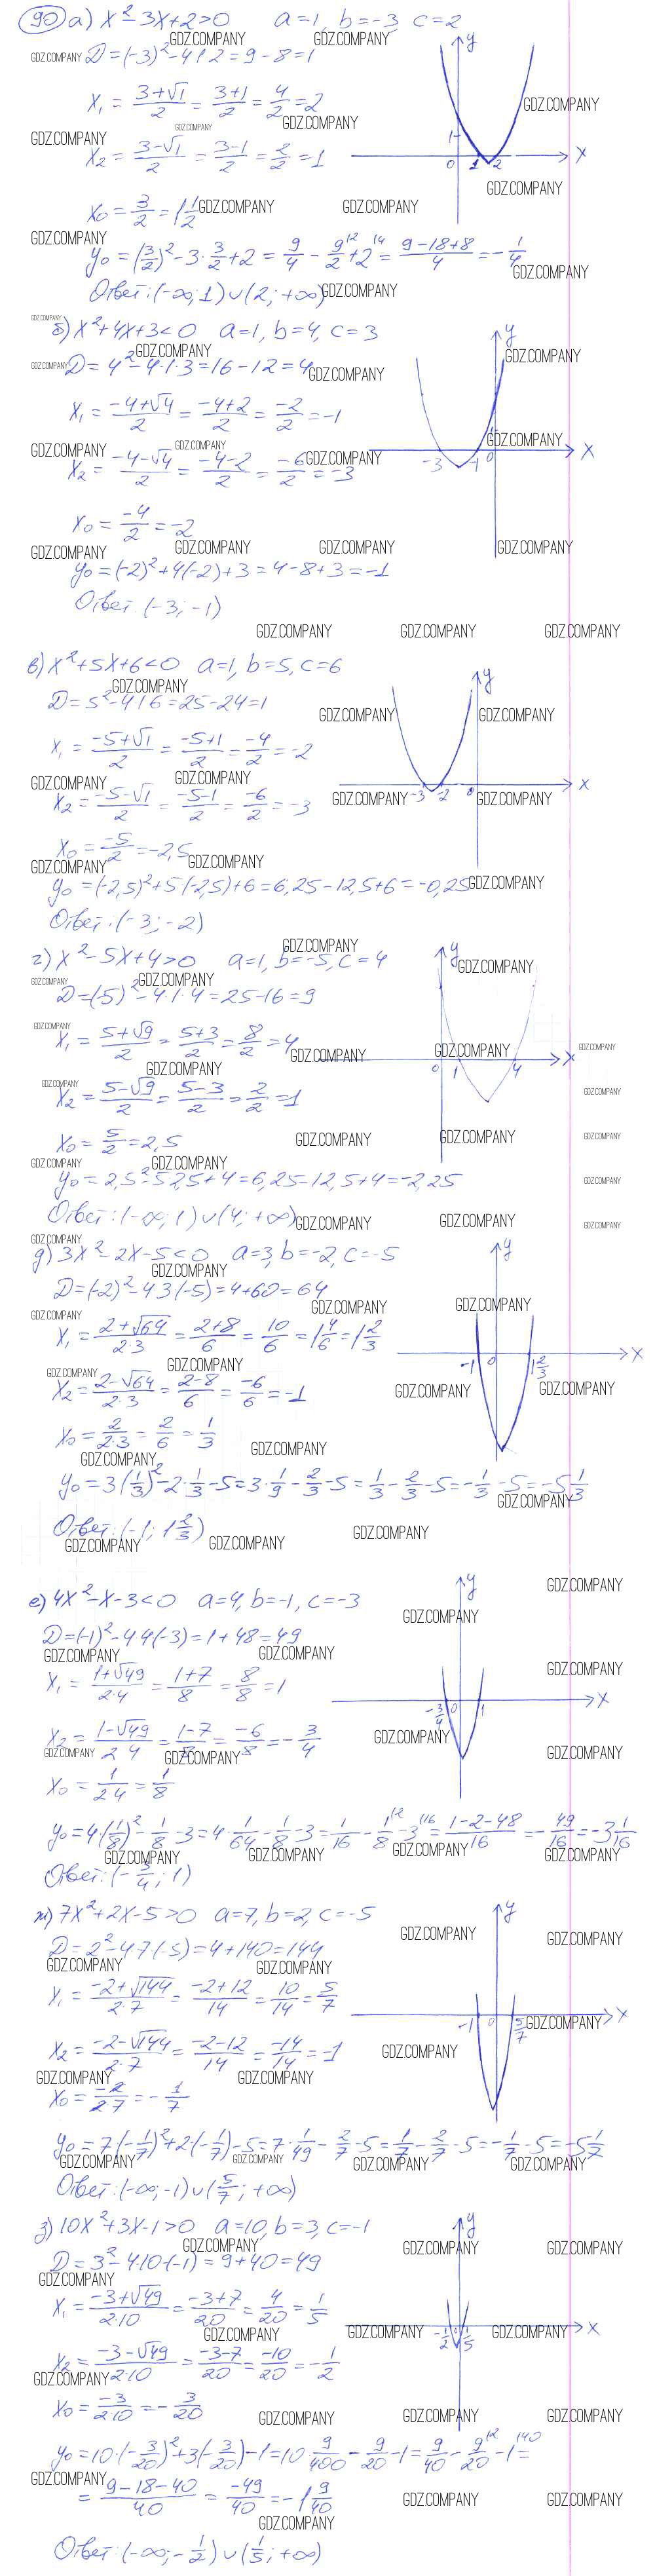 90 а) x² - 3x + 2 > 0   a=1, b=-3, c=2
D = (-3)² - 4·1·2 = 9 - 8 = 1
x₁ = (3+√1)/2 = (3+1)/2 = 4/2 = 2
x₂ = (3-√1)/2 = (3-1)/2 = 2/2 = 1
x₀ = 3/2 = 1 1/2
y₀ = (3/2)² - 3·3/2 + 2 = 9/4 - 9/2 + 2 = (9-18+8)/4 = -1/4
Ответ: (-∞; 1) ∪ (2; +∞)
б) x² + 4x + 3 < 0   a=1, b=4, c=3
D = 4² - 4·1·3 = 16 - 12 = 4
x₁ = (-4+√4)/2 = (-4+2)/2 = -2/2 = -1
x₂ = (-4-√4)/2 = (-4-2)/2 = -6/2 = -3
x₀ = -4/2 = -2
y₀ = (-2)² + 4(-2) + 3 = 4 - 8 + 3 = -1
Ответ: (-3; -1)
в) x² + 5x + 6 < 0   a=1, b=5, c=6
D = 5² - 4·1·6 = 25 - 24 = 1
x₁ = (-5+√1)/2 = (-5+1)/2 = -4/2 = -2
x₂ = (-5-√1)/2 = (-5-1)/2 = -6/2 = -3
x₀ = -5/2 = -2,5
y₀ = (-2,5)² + 5(-2,5) + 6 = 6,25 - 12,5 + 6 = -0,25
Ответ: (-3; -2)
г) x² - 5x + 4 > 0   a=1, b=-5, c=4
D = (-5)² - 4·1·4 = 25 - 16 = 9
x₁ = (5+√9)/2 = (5+3)/2 = 8/2 = 4
x₂ = (5-√9)/2 = (5-3)/2 = 2/2 = 1
x₀ = 5/2 = 2,5
y₀ = 2,5² - 5·2,5 + 4 = 6,25 - 12,5 + 4 = -2,25
Ответ: (-∞; 1) ∪ (4; +∞)
д) 3x² - 2x - 5 < 0   a=3, b=-2, c=-5
D = (-2)² - 4·3(-5) = 4 + 60 = 64
x₁ = (2+√64)/(2·3) = (2+8)/6 = 10/6 = 1 4/6 = 1 2/3
x₂ = (2-√64)/(2·3) = (2-8)/6 = -6/6 = -1
x₀ = 2/(2·3) = 2/6 = 1/3
y₀ = 3(1/3)² - 2·1/3 - 5 = 3·1/9 - 2/3 - 5 = 1/3 - 2/3 - 5 = -1/3 - 5 = -5 1/3
Ответ: (-1; 1 2/3)
е) 4x² - x - 3 < 0   a=4, b=-1, c=-3
D = (-1)² - 4·4(-3) = 1 + 48 = 49
x₁ = (1+√49)/(2·4) = (1+7)/8 = 8/8 = 1
x₂ = (1-√49)/(2·4) = (1-7)/8 = -6/8 = -3/4
x₀ = 1/(2·4) = 1/8
y₀ = 4(1/8)² - 1/8 - 3 = 4·1/64 - 1/8 - 3 = 1/16 - 1/8 - 3 = (1-2-48)/16 = -49/16 = -3 1/16
Ответ: (-3/4; 1)
ж) 7x² + 2x - 5 > 0   a=7, b=2, c=-5
D = 2² - 4·7(-5) = 4 + 140 = 144
x₁ = (-2+√144)/(2·7) = (-2+12)/14 = 10/14 = 5/7
x₂ = (-2-√144)/(2·7) = (-2-12)/14 = -14/14 = -1
x₀ = -2/(2·7) = -1/7
y₀ = 7(-1/7)² + 2(-1/7) - 5 = 7·1/49 - 2/7 - 5 = 1/7 - 2/7 - 5 = -1/7 - 5 = -5 1/7
Ответ: (-∞; -1) ∪ (5/7; +∞)
з) 10x² + 3x - 1 > 0   a=10, b=3, c=-1
D = 3² - 4·10·(-1) = 9 + 40 = 49
x₁ = (-3+√49)/(2·10) = (-3+7)/20 = 4/20 = 1/5
x₂ = (-3-√49)/(2·10) = (-3-7)/20 = -10/20 = -1/2
x₀ = -3/(2·10) = -3/20
y₀ = 10·(-3/20)² + 3(-3/20) - 1 = 10·9/400 - 9/20 - 1 = 9/40 - 9/20 - 1 =
= (9-18-40)/40 = -49/40 = -1 9/40
Ответ: (-∞; -1/2) ∪ (1/5; +∞)
GDZ.COMPANY